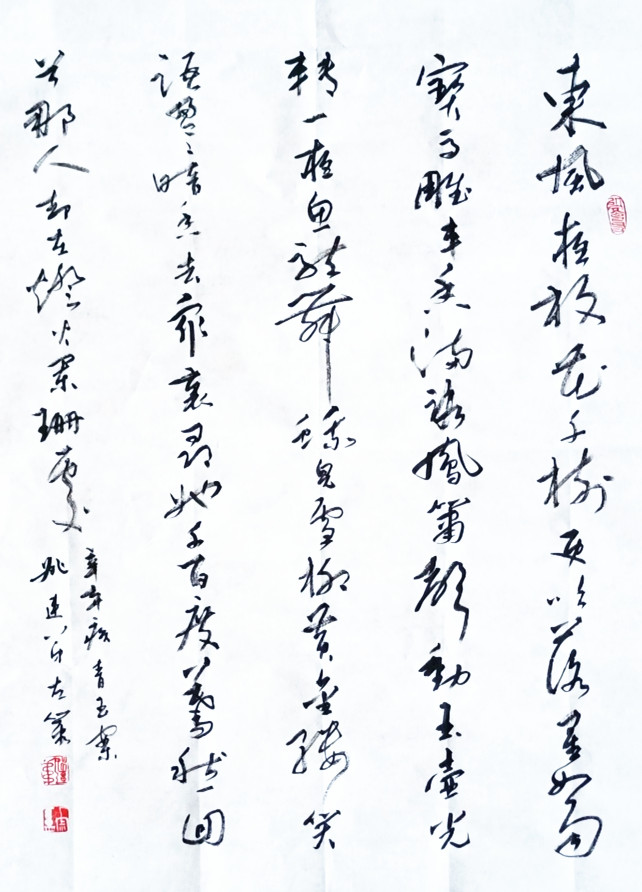 東風夜放花千樹更吹落星如雨
寶馬雕車香滿路鳳簫聲動玉壺光
轉一夜魚龍舞蛾兒雪柳黃金縷笑
語盈〻暗香去眾裏尋她千百度驀然回
首那人卻在燈火闌珊處
辛棄疾青玉案
姚建